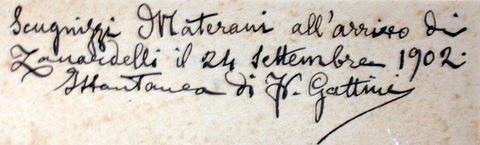 Scugnizzi Materani all'arrivo di
Zanardelli il 24 Settembre 1902.
Istantanea di Fr. Gattini